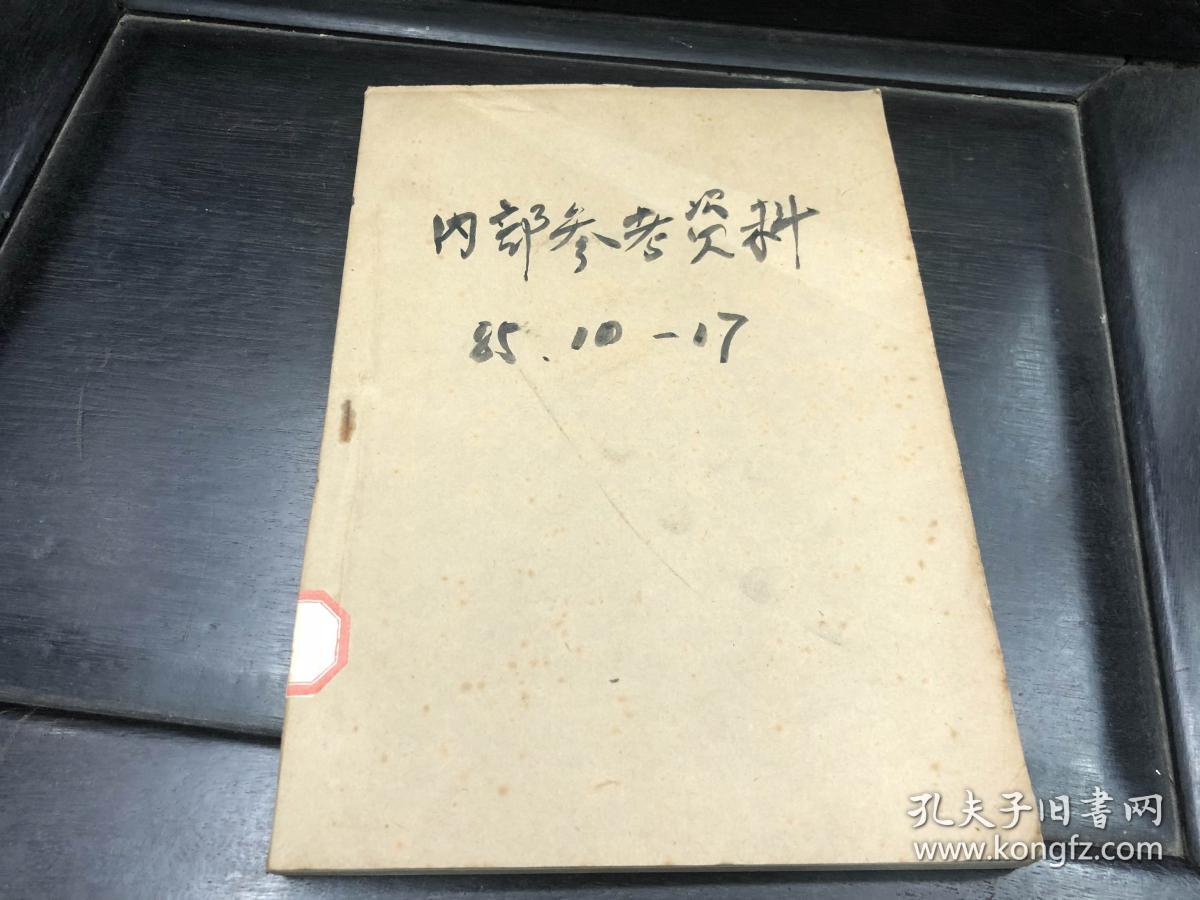 内部参考资料
85.10-17
孔夫子旧书网
www.kongfz.com